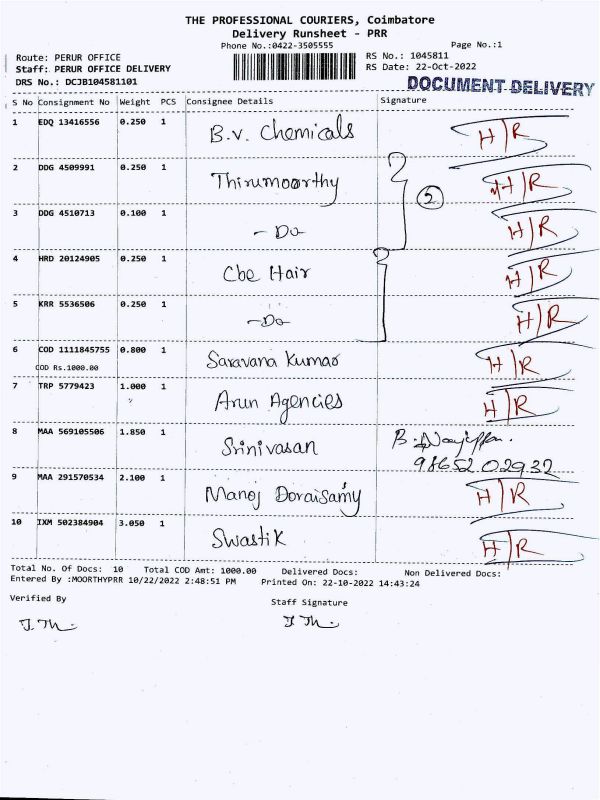 THE PROFESSIONAL COURIERS, Coimbatore
Delivery Runsheet - PRR
Phone No.:0422-3505555 Page No.:1
Route: PERUR OFFICE RS No.: 1045811
Staff: PERUR OFFICE DELIVERY RS Date: 22-Oct-2022
DRS No.: DCJB104581101 DOCUMENT DELIVERY
S No Consignment No Weight PCS Consignee Details Signature
1 EDQ 13416556 0.250 1 B.V. Chemicals H/R
2 DDG 4509991 0.250 1 Thirumoorthy H/R
2
3 DDG 4510713 0.100 1 - Do - H/R
4 HRD 20124905 0.250 1 Cbe Hair H/R
5 KRR 5536506 0.250 1 - Do - H/R
6 COD 1111845755 0.800 1 Saravana Kumar H/R
COD Rs.1000.00
7 TRP 5779423 1.000 1 Arun Agencies H/R
8 MAA 569105506 1.850 1 Srinivasan B.
9865202932
9 MAA 291570534 2.100 1 Manoj Doraisamy H/R
10 IXM 502384904 3.050 1 Swastik H/R
Total No. Of Docs: 10 Total COD Amt: 1000.00 Delivered Docs: Non Delivered Docs:
Entered By :MOORTHYPRR 10/22/2022 2:48:51 PM Printed On: 22-10-2022 14:43:24
Verified By Staff Signature